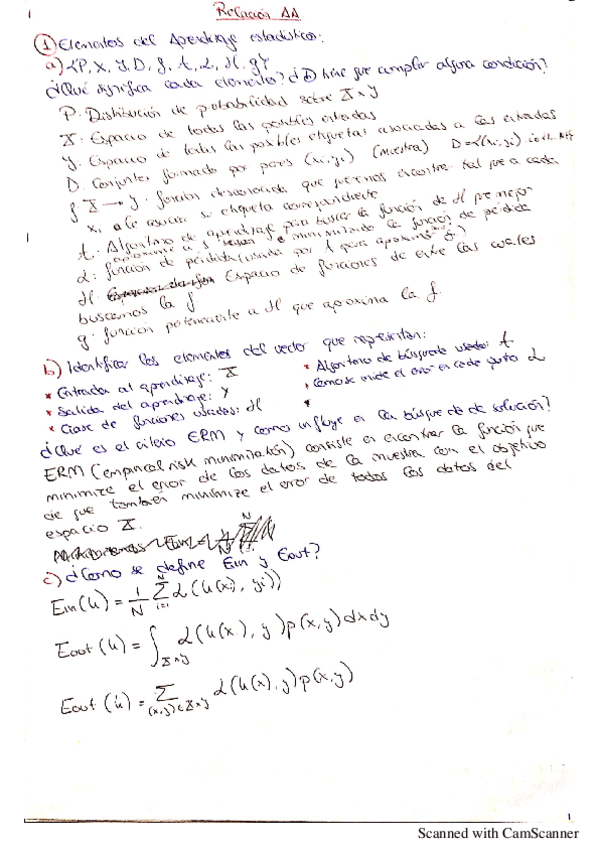 Relación AA
① Elementos del Aprendizaje estadístico:
a) ⟨P, X, Y, D, f, A, L, H, g⟩
¿Qué significa cada elemento? ¿D tiene que cumplir alguna condición?
P: Distribución de probabilidad sobre X x Y
X: Espacio de todas las posibles entradas
Y: Espacio de todas las posibles etiquetas asociadas a las entradas
D: Conjunto formado por pares (xi, yi) (muestra) D = {(xi, yi)
f: X → Y: función desconocida que queremos encontrar tal que a cada
xi a le asocia su etiqueta correspondiente
A: Algoritmo de aprendizaje para buscar la función de H que mejor
aproxime f minimizando la función de pérdida
L: función de pérdida (usada por A para
H: Espacio de funciones de entre las cuales
buscamos la f
g: función perteneciente a H que aproxima la f.
b) Identificar los elementos del vector que representan:
* Entrada al aprendizaje: X
* Salida del aprendizaje: Y
* Clase de funciones usadas: H
* Algoritmo de búsqueda usado: A
* Como se mide el error en cada punto L
*
¿Qué es el criterio ERM y como influye en la búsqueda de solución?
ERM (empirical risk minimization) consiste en encontrar la función que
minimize el error de los datos de la muestra con el objetivo
de que también minimize el error de todos los datos del
espacio X.
c) ¿Como se define Ein y Eout?
Ein(h) = 1/N Σ i=1 N L(h(xi), yi))
Eout(h) = ∫ X x Y L(h(x), y) p(x, y) dx dy
Eout(h) = Σ (x,y) ∈ X x Y L(h(x), y) p(x, y)
1
Scanned with CamScanner